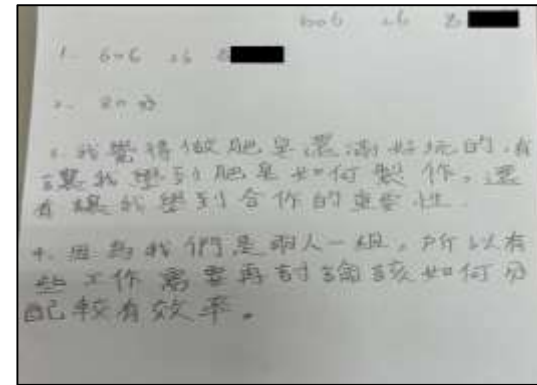 606 26
1. 606 26
2. 80分
3. 我覺得做肥皂還滿好玩的,有
讓我學到肥皂是如何製作,還
有讓我學到合作的重要性
4. 因為我們是兩人一組,所以有
些工作需要再討論該如何分
配較有效率。